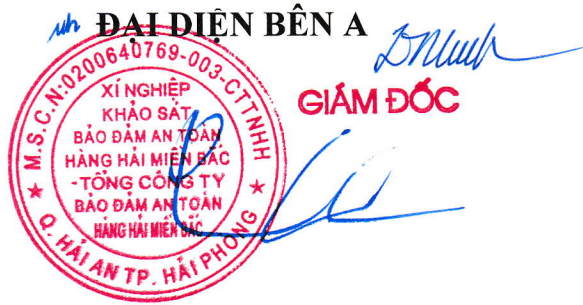 ĐẠI DIỆN BÊN A
GIÁM ĐỐC
M.S.C.N:0200640769-003-CTTNHH
XÍ NGHIỆP
KHẢO SÁT
BẢO ĐẢM AN TOÀN
HÀNG HẢI MIỀN BẮC
-TỔNG CÔNG TY
BẢO ĐẢM AN TOÀN
HÀNG HẢI MIỀN BẮC
★ Q. HẢI AN TP. HẢI PHÒNG ★